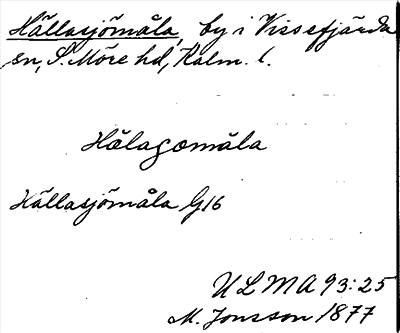 Hällasjömåla, by i Vissefjärda
sn, S. Möre hd, Kalm. l.
Hälagomåla
Hällasjömåla G16
ULMA 93:25
M. Jonsson 1877